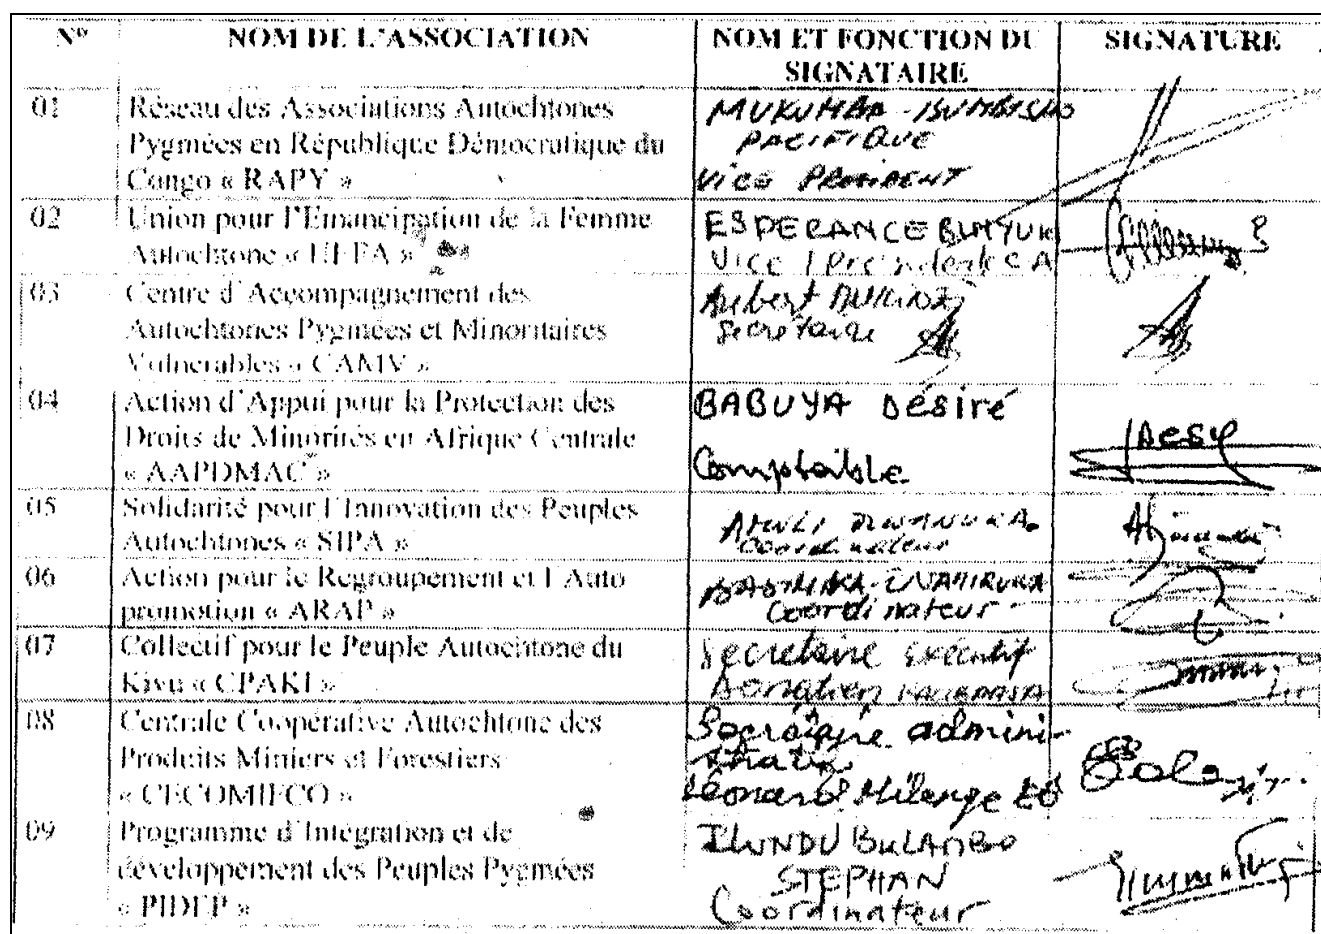 N° NOM DE L'ASSOCIATION NOM ET FONCTION DU SIGNATAIRE SIGNATURE
01 Réseau des Associations Autochtones
Pygmées en République Démocratique du
Congo « RAPY »
MUKUMBA - ISUMBISHO
PACIFIQUE
Vice PRESIDENT
02 Union pour l'Emancipation de la Femme
Autochtone « UEFA »
ESPERANCE BINYUKI
Vice Présidente CA
03 Centre d'Accompagnement des
Autochtones Pygmées et Minoritaires
Vulnerables « CAMV »
Secrétaire
04 Action d'Appui pour la Protection des
Droits de Minorités en Afrique Centrale
« AAPDMAC »
BABUYA Désiré
Comptable
05 Solidarité pour l'Innovation des Peuples
Autochtones « SIPA »
Coordinateur
06 Action pour le Regroupement et l'Auto
promotion « ARAP »
Coordinateur
07 Collectif pour le Peuple Autochtone du
Kivu « CPAKI »
Secrétaire exécutif
Donatien
08 Centrale Coopérative Autochtone des
Produits Miniers et Forestiers
« CECOMIFCO »
Secrétaire admini-
stratif
Léonard
09 Programme d'Intégration et de
développement des Peuples Pygmées
« PIDEP »
ILUNDU BULAMBO
STEPHAN
Coordinateur